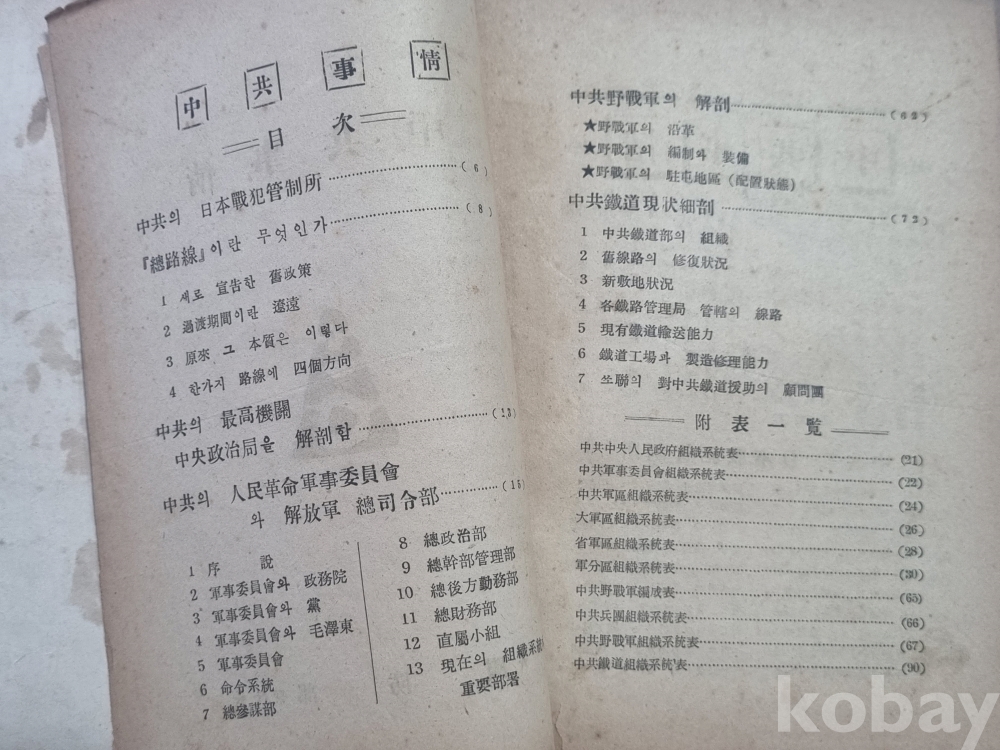 中共事情
目次
中共의 日本戰犯管制所 (6)
『總路線』이란 무엇인가 (8)
1 새로 宣告한 舊政策
2 過渡期間이란 遼遠
3 原來 그 本質은 이렇다
4 한가지 路線에 四個方向
中共의 最高機關
中央政治局을 解剖함 (13)
中共의 人民革命軍事委員會
와 解放軍 總司令部 (15)
1 序說
2 軍事委員會와 政務院
3 軍事委員會와 黨
4 軍事委員會와 毛澤東
5 軍事委員會
6 命令系統
7 總參謀部
8 總政治部
9 總幹部管理部
10 總後方勤務部
11 總財務部
12 直屬小組
13 現在의 組織系統
重要部署
中共野戰軍의 解剖 (62)
★野戰軍의 沿革
★野戰軍의 編制와 裝備
★野戰軍의 駐屯地區 (配置狀態)
中共鐵道現狀細剖 (72)
1 中共鐵道部의 組織
2 舊線路의 修復狀況
3 新敷地狀況
4 各鐵路管理局 管轄의 線路
5 現有鐵道輸送能力
6 鐵道工場과 製造修理能力
7 쏘聯의 對中共鐵道援助의 顧問團
附表一覧
中共中央人民政府組織系統表 (21)
中共軍事委員會組織系統表 (22)
中共軍區組織系統表 (24)
大軍區組織系統表 (26)
省軍區組織系統表 (28)
軍分區組織系統表 (30)
中共野戰軍編成表 (65)
中共兵團組織系統表 (66)
中共野戰軍組織系統表 (67)
中共鐵道組織系統表 (90)
kobay